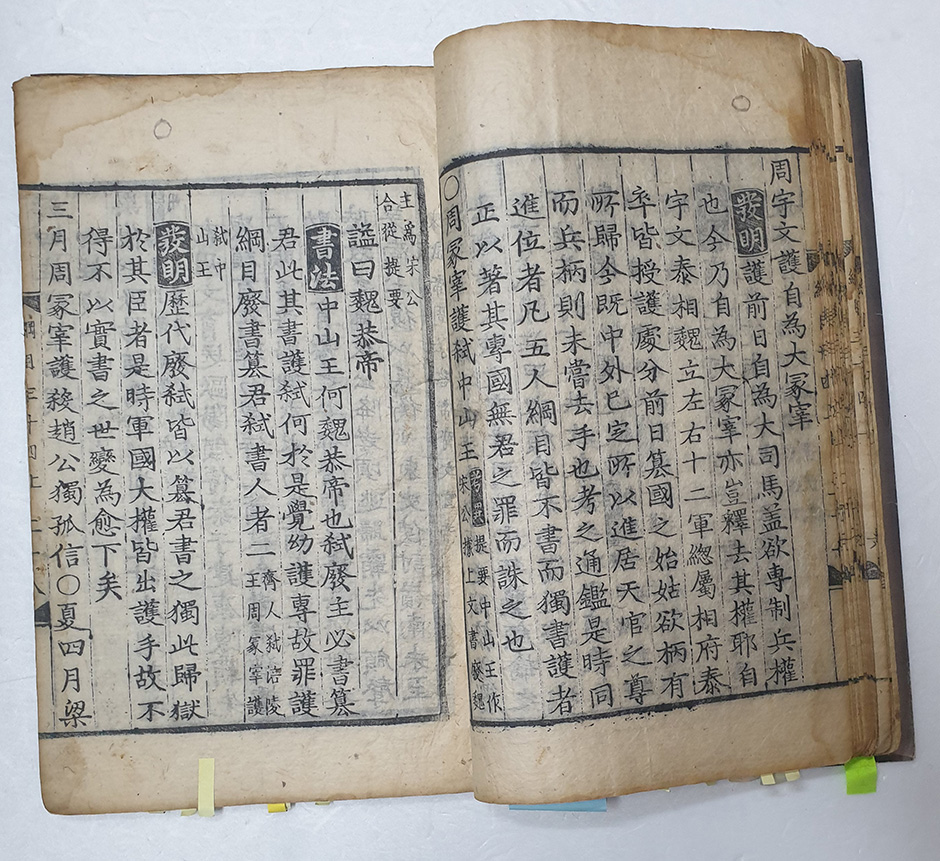 周宇文護自為大冢宰
發明護前日自為大司馬蓋欲専制兵權
也今乃自為大冢宰亦豈釋去其權耶自
宇文泰相魏立左右十二軍緫屬相府泰
卒皆授護處分前日簒國之始姑欲柄有
所歸今既中外已定所以進居天官之尊
而兵柄則未嘗去手也考之通鑑是時同
進位者凡五人綱目皆不書而獨書護者
正以著其專國無君之罪而誅之也
○周冢宰護弑中山王考異
提要中山王作
宋公據上文書廢魏
主為宋公
合從提要
謚曰魏恭帝
書法中山王何魏恭帝也弑廢主必書簒
君此其書護弑何於是覺幼護専故罪護
綱目廢書簒君弑書人者二
齊人弑涪陵
王周冢宰護
弑中
山王
發明歷代廢弑皆以簒君書之獨此歸獄
於其臣者是時軍國大權皆出護手故不
得不以實書之世變為愈下矣
三月周冢宰護殺趙公獨孤信○夏四月梁